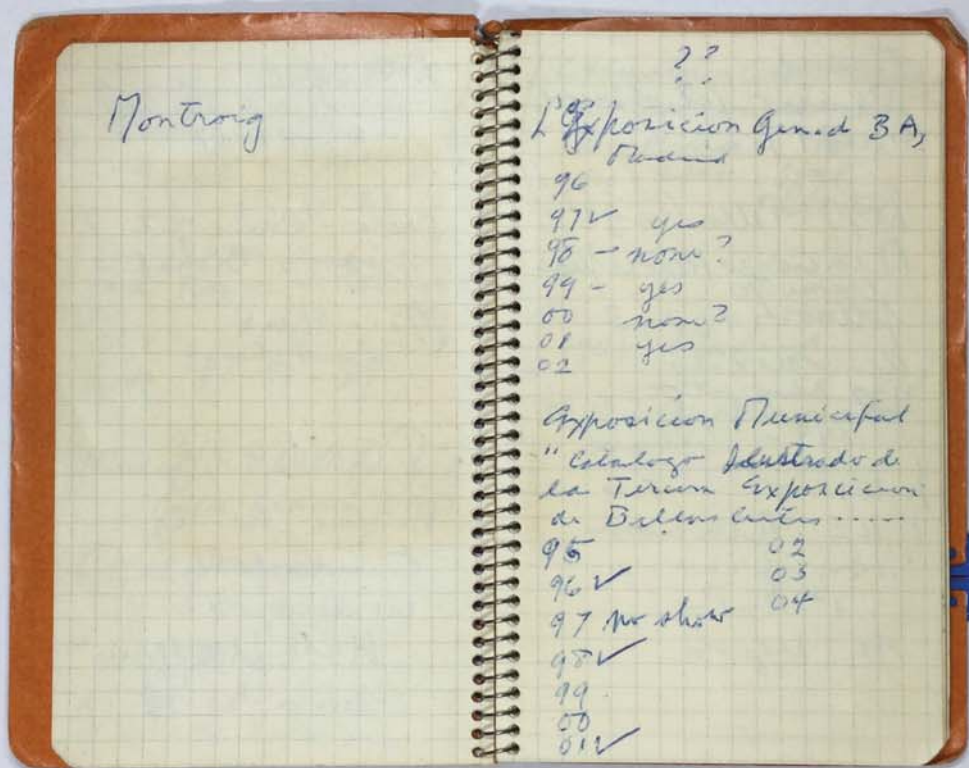 Montroig
? ?
L'Exposicion Gen. d B A,
Madrid
96
97 ✓ yes
98 - none?
99 - yes
00 none?
01 yes
02
Exposicion Municipal
"Catalogo Ilustrado de
la Tercera Exposicion
de Bellas Artes .....
95
96 ✓
97 no show
98 ✓
99
00
01 ✓
02
03
04